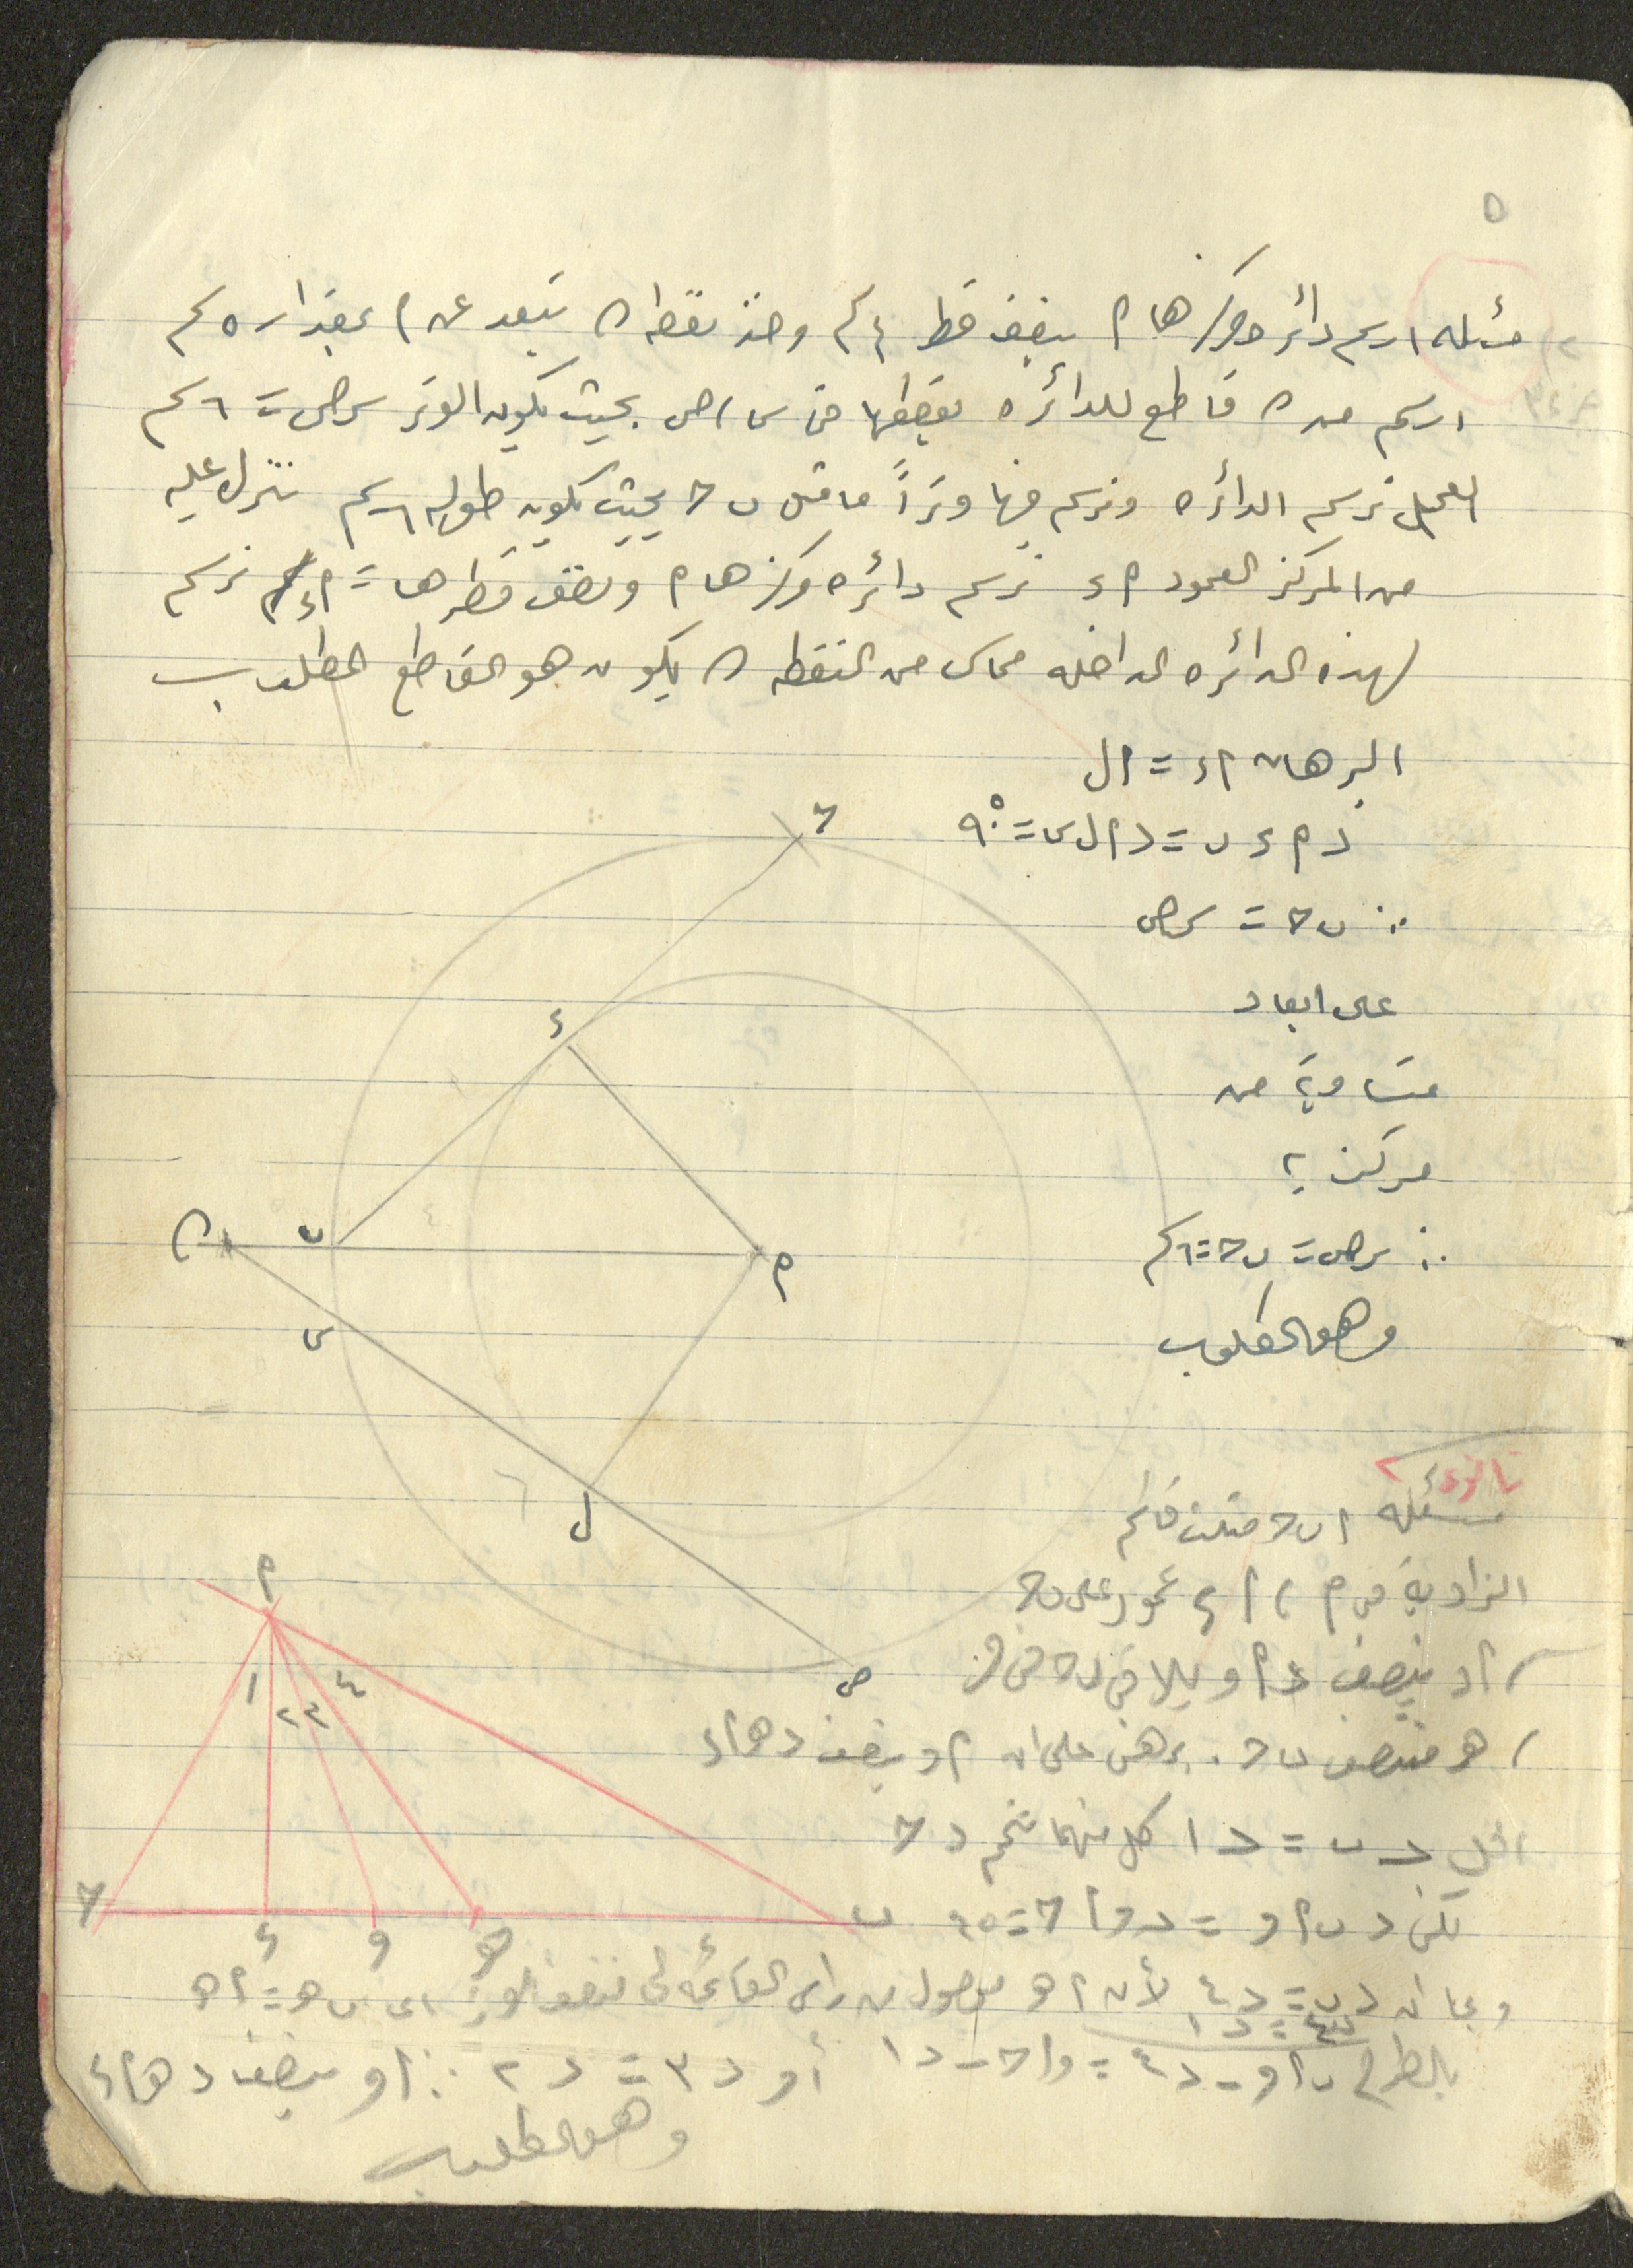 ٥
مسئله ارسم دائره مركزها م بنصف قطر ٤ كم وخذ نقطه ن تبعد عن م بمقدار ٥ كم
ارسم من ن قاطع للدائره يقطعها في س ، ص بحيث يكون الوتر س ص = ٦ كم
العمل نرسم الدائره ونرسم فيها وتراً ما مثل ب ح بحيث يكون طوله ٦ كم ننزل عليه
من المركز العمود م ء نرسم دائره مركزها م ونصف قطرها = م ء نرسم
لهذه الدائره الداخله مماس من النقطه ن يكون هو القاطع المطلوب
البرهان م ء = م ل
د م ء ب = د م ل س = ٩٠°
∴ ب ح = س ص
على ابعاد
متساوية من
مركزية
∴ س ص = ب ح = ٦ كم
وهو المطلوب
ح
ء
ن
ب
م
س
ل
ص
مسئله ا ب ح مثلث قائم
الزاوية في م ، ا ء عمود على ب ح
، ا و ينصف د ا ويلاقي ب ح في و
، هـ منتصف ب ح . برهن على ان ا و ينصف د هـ ا ء
الحل د ب = د ١ كل منهما تتمم د ح
لكن د ب ا و = د و ا ح = ٤٥
وبما ان د ب = د ٤ لأن ا هـ موصول من راس القائمة الى منتصف الوتر اى ب هـ = ا هـ
د ٤ = د ١
بالطرح ب ا و - د ٤ = و ا ح - د ١ أو د ٣ = د ٢ ∴ ا و ينصف د هـ ا ء
وهو المطلوب
م
١
٢ ٣
٤
ح
ء
و
هـ
ب